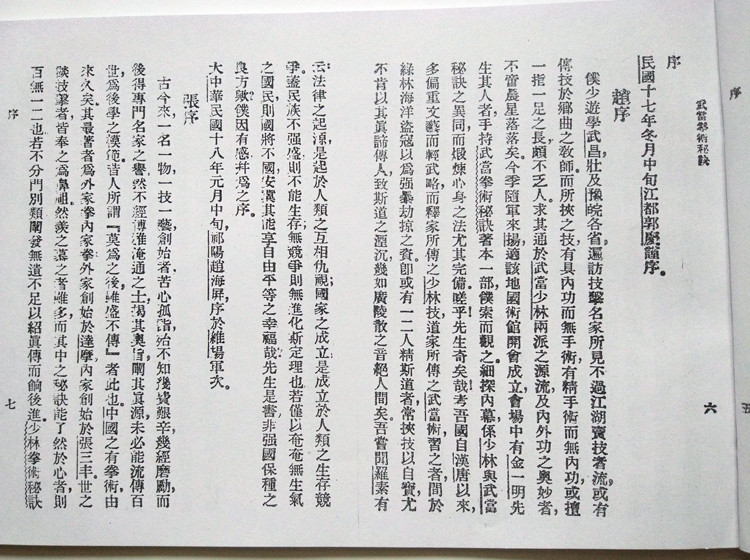 序
武當拳術秘訣
六
序
民國十七年冬月中旬江都郭慶謹序。
趙序
僕少遊學武昌壯及豫皖各省遍訪技擊名家所見不過江湖賣技者流或有
傳技於鄉曲之教師而所挾之技有具內功而無手術有精手術而無內功或擅
一指一足之長頗不乏人求其通於武當少林兩派之源流及內外功之奧妙者，
不啻晨星落落矣今季隨軍來揚適該地國術館開會成立會場中有金一明先
生其人者手持武當拳術秘訣著本一部僕索而觀之細探內幕係少林與武當
秘訣之異同而煅煉心身之法尤其完備嗟乎先生奇矣哉考吾國自漢唐以來，
多偏重文藝而輕武略而釋家所傳之少林技道家所傳之武當術習之者間於
綠林海洋盜寇以為強暴劫掠之資卽或有一二人精斯道者常挾技以自寶尤
不肯以其眞諦傳人致斯道之湮沉幾如廣陵散之音絕人間矣吾嘗聞羅素有
云法律之起源是起於人類之互相仇視國家之成立是成立於人類之生存競
爭蓋民族不强盛則不能生存無競爭則無進化斯定理也若僅以奄奄無生氣
之國民則國將不國安冀其能享自由平等之幸福哉先生是書非强國保種之
良方歟僕因有感幷為之序。
大中華民國十八年元月中旬祁陽趙海屏序於維揚軍次。
張序
古今來一名一物一技一藝創始者苦心孤詣殆不知幾費艱辛幾經磨勵而
後得專門名家之譽然不經博雅淹通之士揭其奧旨闡其眞源未必能流傳百
世爲後學之模範昔人所謂『莫爲之後雖盛不傳』者此也中國之有拳術由
來久矣其最著者爲外家拳內家拳外家創始於達摩內家創始於張三丰世之
談技擊者皆奉之爲鼻祖然羨之慕之者雖多而其中之秘訣能了然於心者則
百無一二也若不分門別類闡發無遺不足以紹眞傳而餉後進少林拳術秘訣
序
七